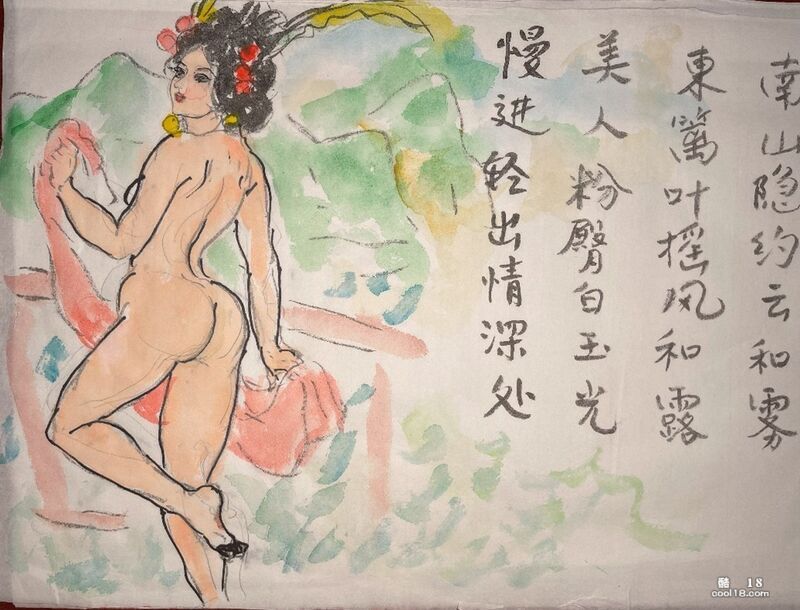 南山隐约云和雾
東篱叶摇风和露
美人粉臀白玉光
慢进轻出情深处
酷 18
cool18.com